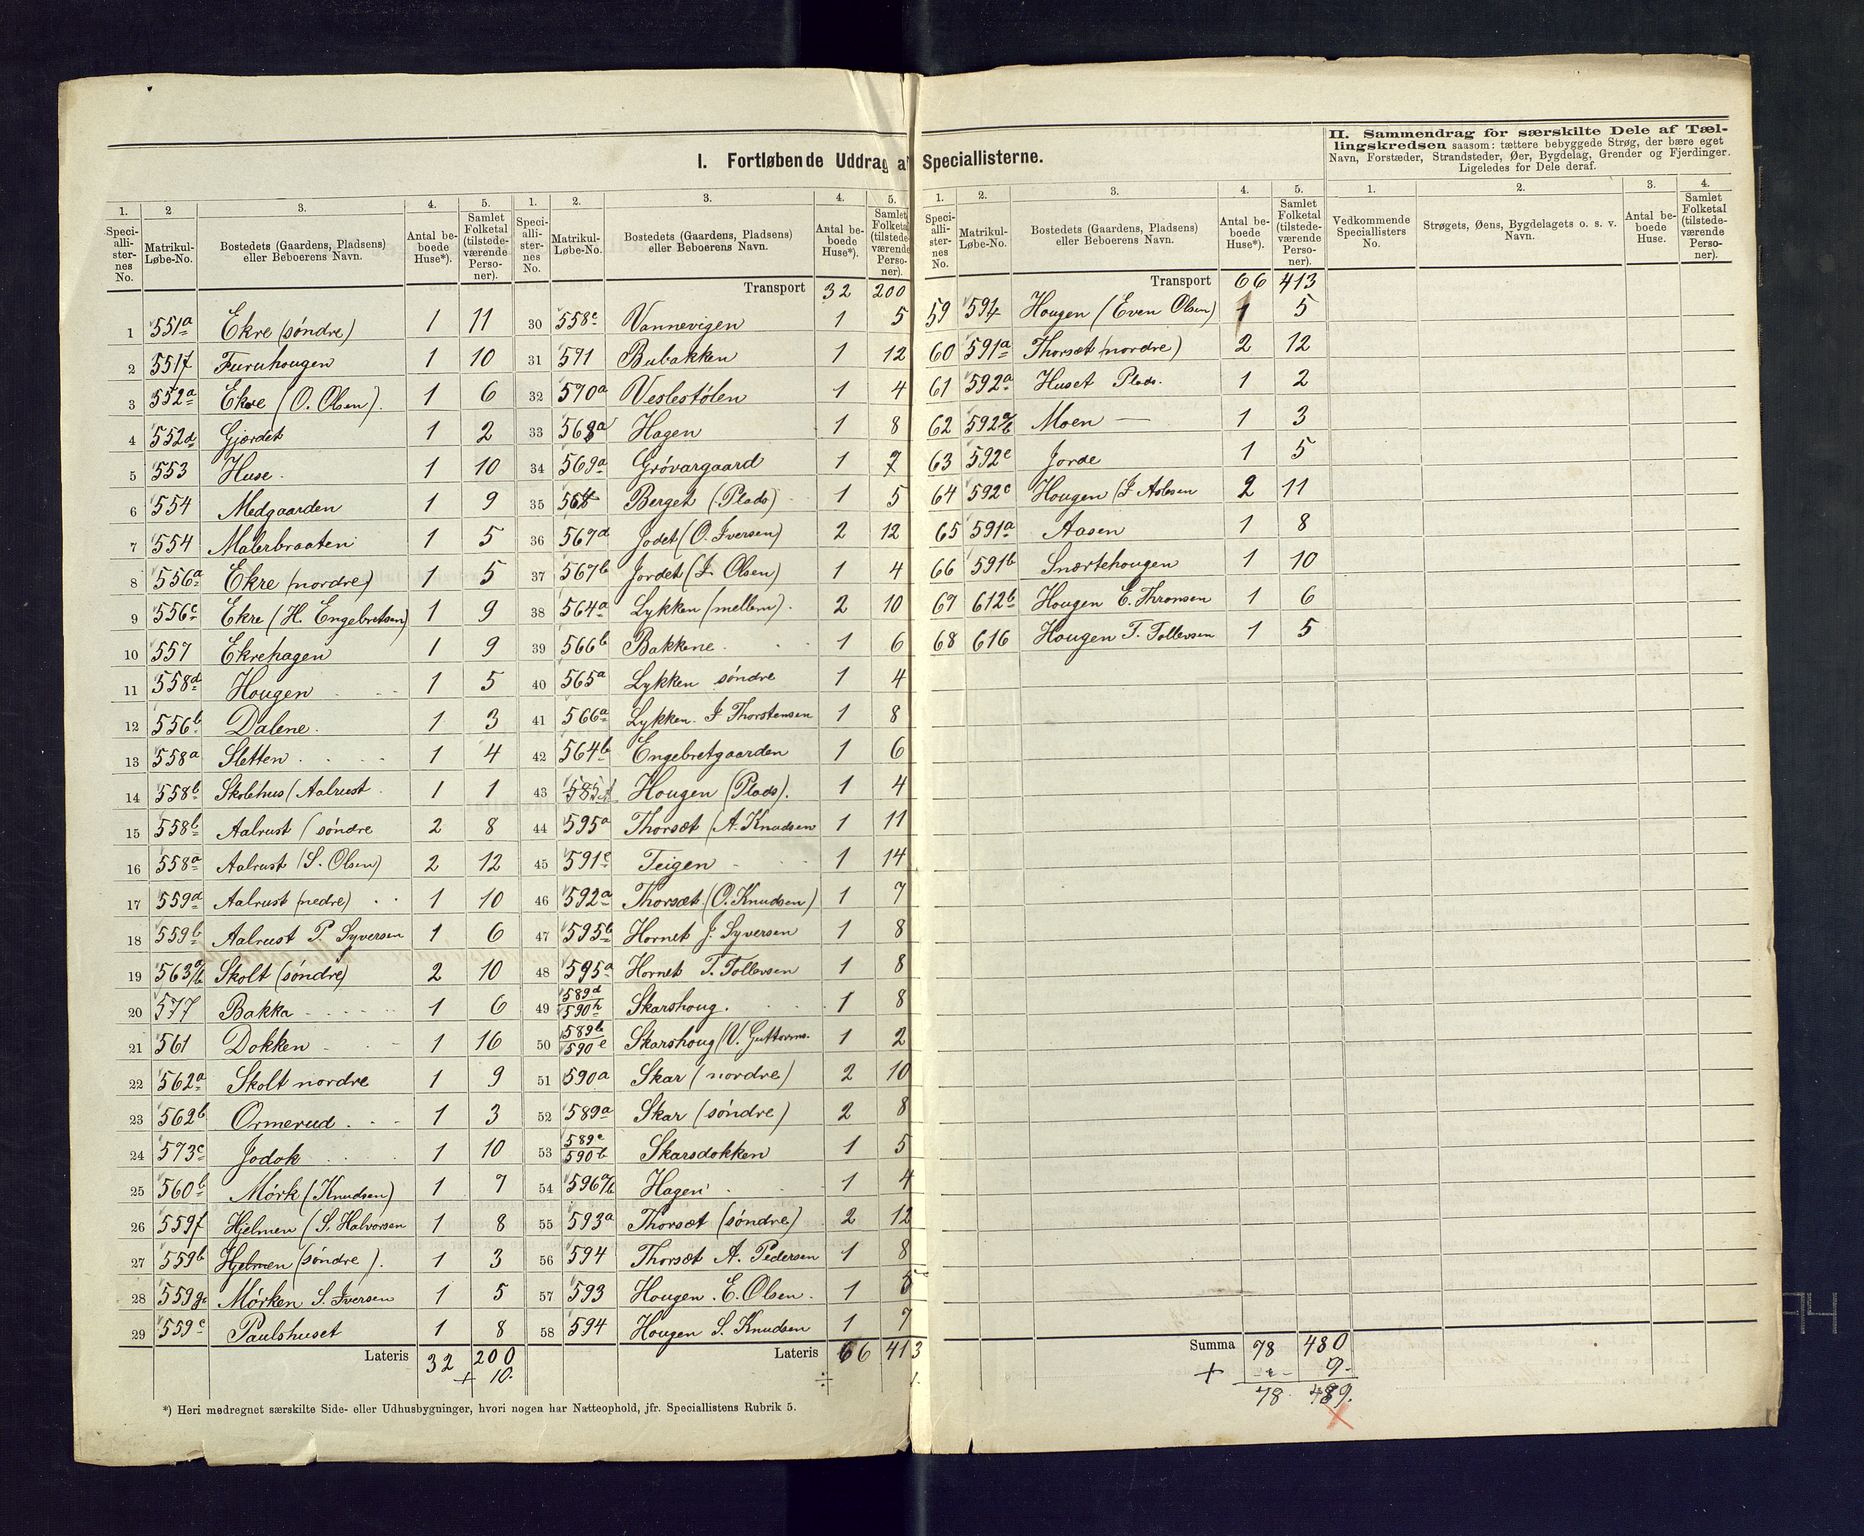 I. Fortløbende Uddrag af Speciallisterne.
II. Sammendrag for særskilte Dele af Tæl-
lingskredsen saasom: tættere bebyggede Strøg, der bære eget
Navn, Forstæder, Strandsteder, Øer, Bygdelag, Grender og Fjerdinger.
Ligeledes for Dele deraf.
1. 2 3. 4. 5.
Speciallisternes No. Matrikul-Løbe-No. Bostedets (Gaardens, Pladsens) eller Beboerens Navn. Antal beboede Huse*). Samlet Folketal (tilstedeværende Personer).
1 551a Ekre (søndre) 1 11
2 551f Furuhougen 1 10
3 552a Ekre (O. Olsen). 1 6
4 552d Gjærdet 1 2
5 553 Huse. 1 10
6 554 Medgaarden 1 9
7 554 Malerbraaten 1 5
8 556a Ekre (nordre) 1 5
9 556c Ekre (H. Engebretsen) 1 9
10 557 Ekrehagen 1 9
11 558d Hougen 1 5
12 556b Dalene. 1 3
13 558a Sletten 1 4
14 558b Skolehus (Aalrust. 1 1
15 558b Aalrust (søndre 2 8
16 558a Aalrust (S. Olsen) 2 12
17 559d Aalrust (nedre) 1 10
18 559b Aalrust P. Syversen 1 6
19 563a/b Skolt (søndre) 2 10
20 577 Bakka 1 6
21 561 Dokken 1 16
22 562a Skolt nordre 1 9
23 562b Ormerud 1 3
24 573c Jodok 1 10
25 560b Mørk (Knudsen) 1 7
26 559f Hjelmen (S. Halvorsen 1 8
27 559b Hjelmen (søndre). 1 3
28 559g Mørken S. Iversen 1 5
29 559c Paulshuset 1 8
Lateris 32 200
+ 10.
*) Heri medregnet særskilte Side- eller Udhusbygninger, hvori nogen har Natteophold, jfr. Speciallistens Rubrik 5.
1. 2. 3. 4. 5.
Speciallisternes No. Matrikul-Løbe-No. Bostedets (Gaardens, Pladsens) eller Beboerens Navn. Antal beboede Huse*). Samlet Folketal (tilstedeværende Personer).
Transport 32 200
30 558c Vannevigen 1 5
31 591 Bubakken 1 12
32 570a Veslestølen 1 4
33 568a Hagen 1 8
34 569a Grøvargaard 1 7
35 Berget (Plads) 1 5
36 567d Jodet (O. Iversen) 2 12
37 567b Jordet (J. Olsen) 1 4
38 564a Lykken (mellem). 2 10
39 566b Bakkene 1 6
40 565a Lykken søndre 1 4
41 566a Lykken. J Thorstensen 1 8
42 564b Engebretgaarden 1 6
43 585 Hougen (Plads). 1 4
44 595a Thorsæt (A. Knudsen 1 11
45 591c Teigen 1 14
46 592a Thorsæt (O. Knudsen) 1 7
47 595b Hornet J. Syversen 1 8
48 595a Hornet T. Tollevsen 1 8
49 589d 590h Skarshoug. 1 8
50 589b 590e Skarshoug (V. Guttorms. 1 2
51 590a Skar (nordre) 2 10
52 589a Skar (søndre) 2 8
53 589c 590b Skarsdokken 1 5
54 596a/b Hagen 1 4
55 593a Thorsæt (søndre) 2 12
56 594 Thorsæt A. Pedersen 1 8
57 593 Hougen. E. Olsen. 1 5
58 594 Hougen S. Knudsen 1 7
Lateris 66 413
÷ 1.
1. 2. 3. 4. 5.
Speciallisternes No. Matrikul-Løbe-No. Bostedets (Gaardens, Pladsens) eller Beboerens Navn. Antal beboede Huse*). Samlet Folketal (tilstedeværende Personer).
Transport 66 413
59 594 Hougen (Even Olsen) 1 5
60 591a Thorsæt (nordre) 2 12
61 592a Huset Plads. 1 2
62 592a/b Moen — 1 3
63 592e Jorde 1 5
64 592c Hougen (J. Aslesen 2 11
65 591a Aasen 1 8
66 591b Snærtehougen 1 10
67 612b Hougen E. Thronsen 1 6
68 616 Hougen T. Tollevsen 1 5
Summa 78 480
+ 9
78. 489.
1. 2. 3. 4.
Vedkommende Speciallisters No. Strøgets, Øens, Bygdelagets o. s. v. Navn. Antal beboede Huse. Samlet Folketal (tilstedeværende Personer).